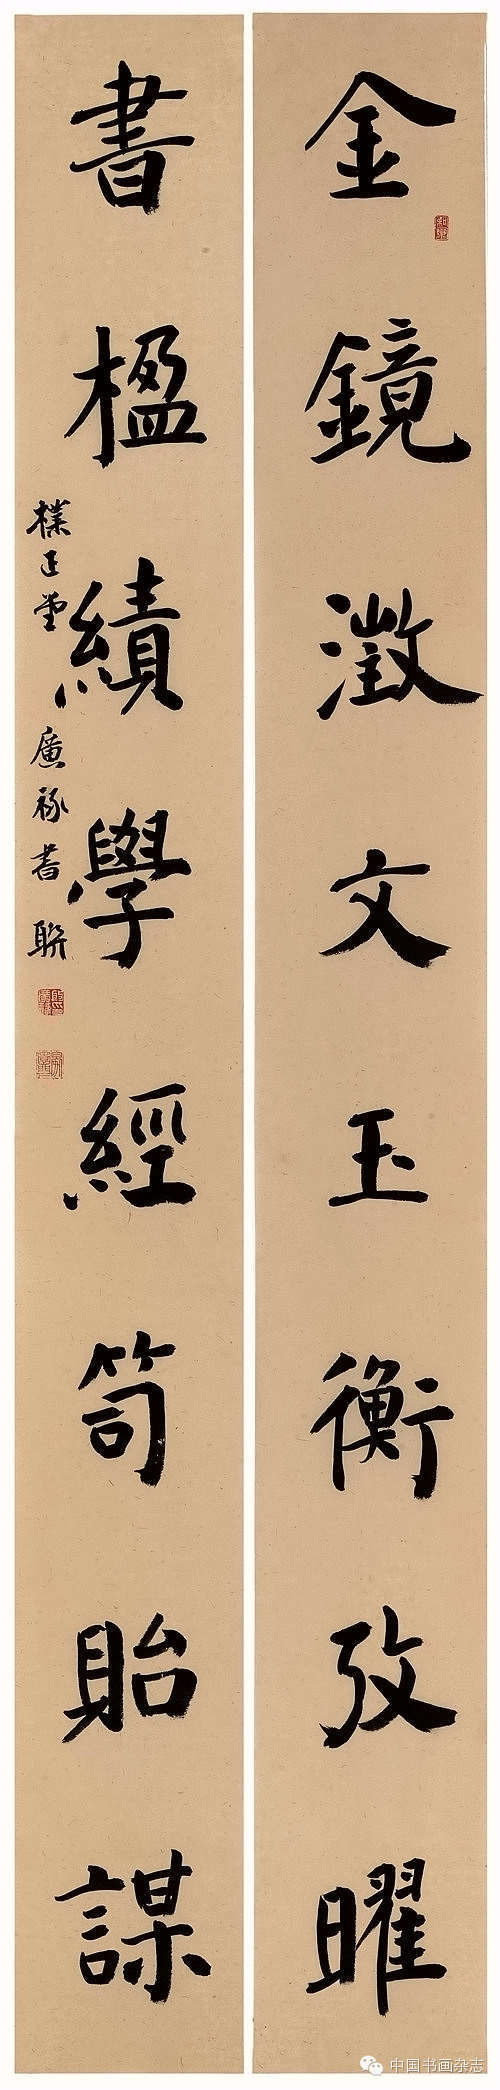 金鏡澂文玉衡攷曜
書楹績學經笥貽謀
樸正堂 廣祿書聯
中国书画杂志